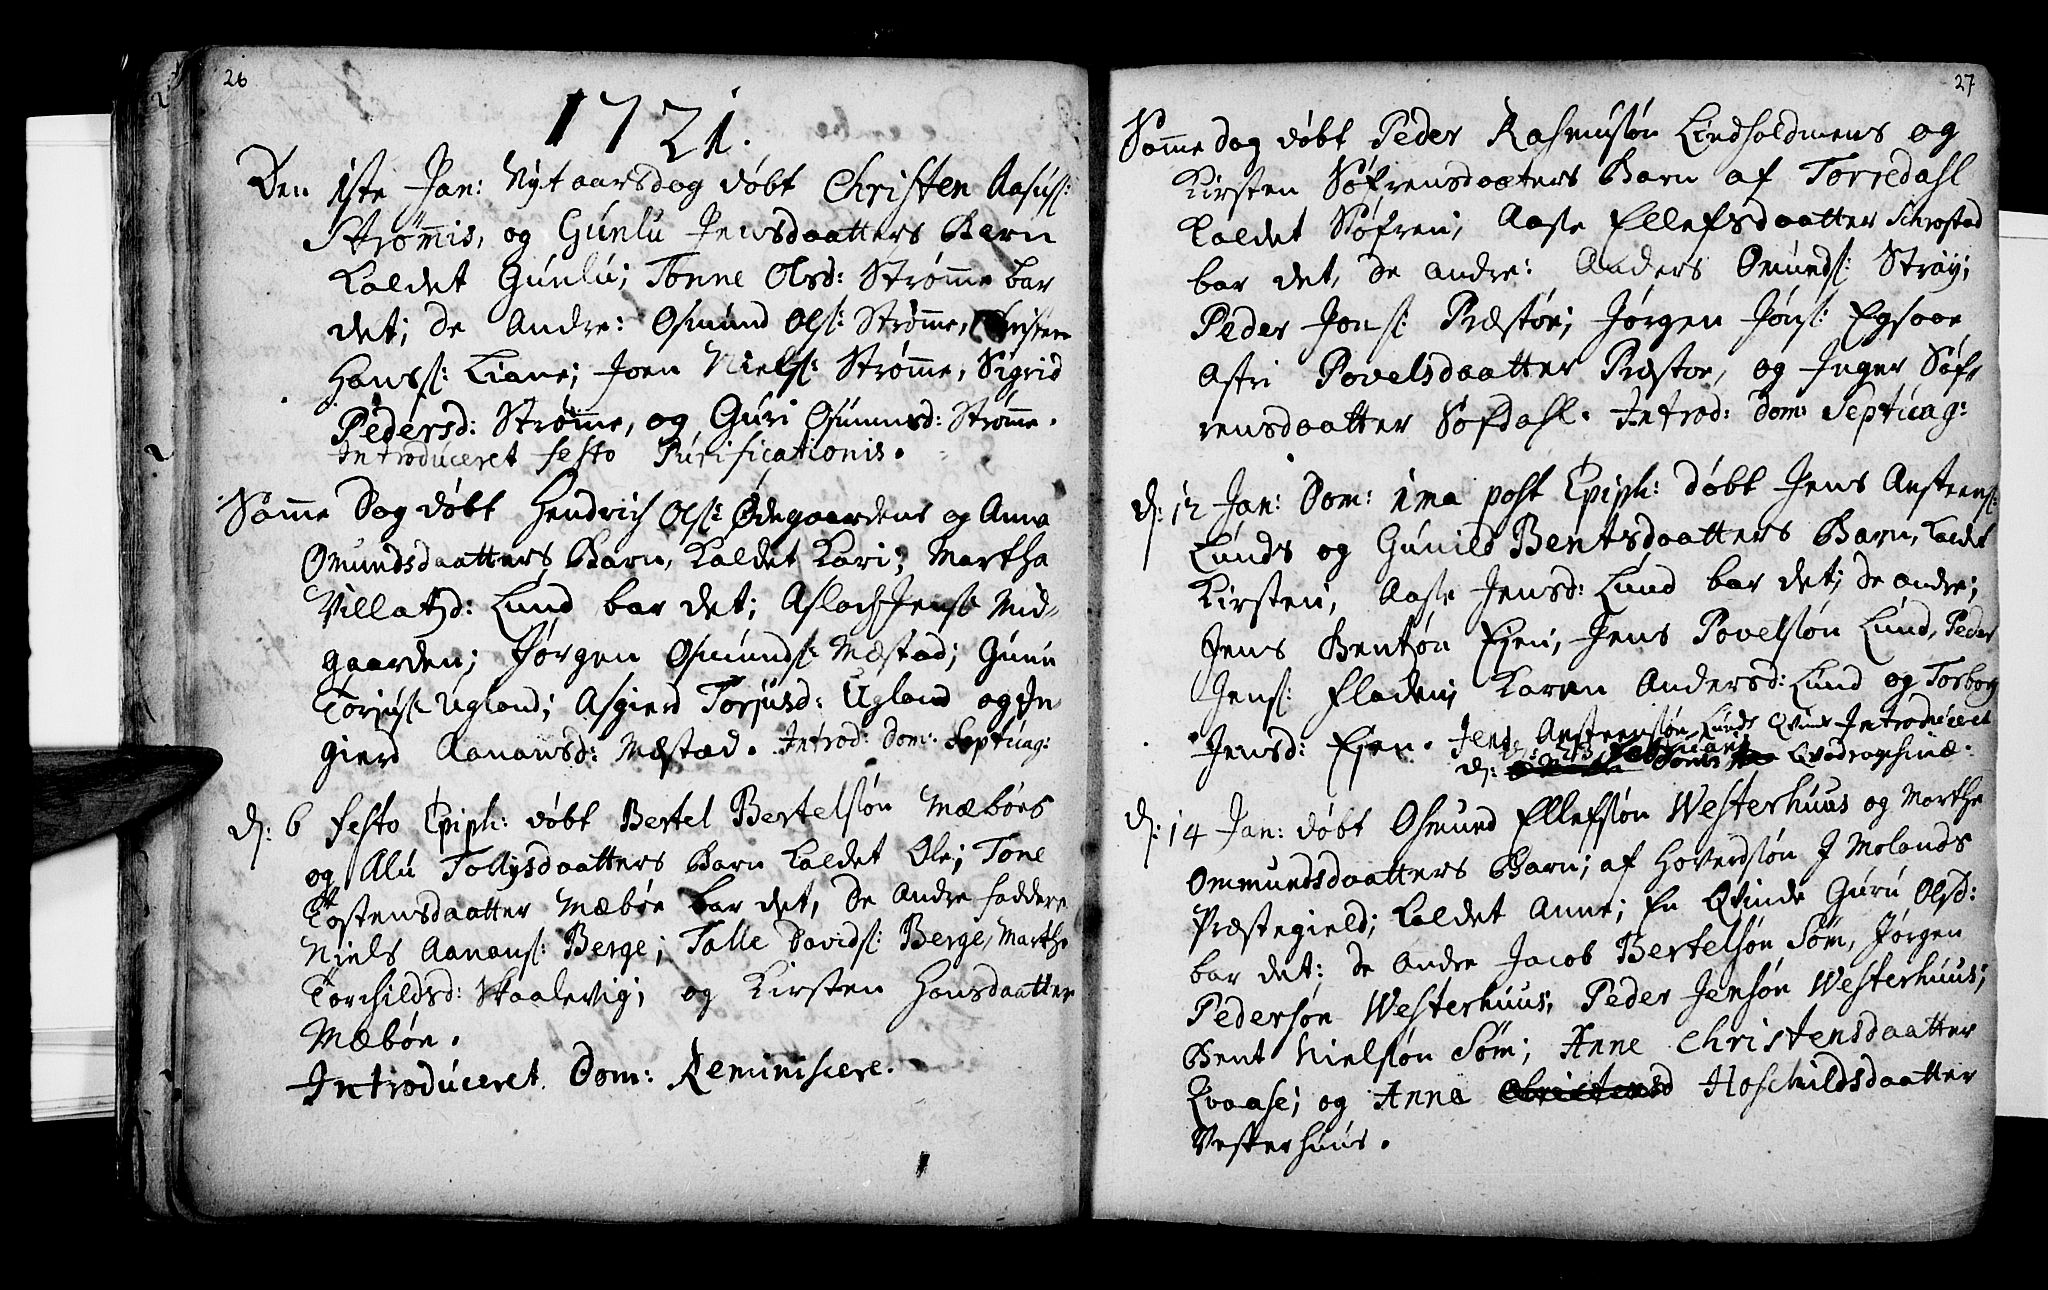 26
1721.
Den 1ste Jan: Nyt aarsdag døbt Christen Aasus:
Strømmis, og Gunlu Jensdaatters Barn
kaldet Gunlu; Tonne Olsd: Strømme bar
det; de Andre: Osmund Ols: Strømme, Christen
Hanss: Liane; Joen Niels: Strømme, Sigrid
Pedersd: Strømme, og Guri Osmunsd: Strømme.
Introduceret festo Purificationis.
Samme Dag døbt Hendrich Ols: Ødegaardens og Anna
Omundsdaatters Barn, kaldet Kari; Martha
Villatzd: Lund bar det; Aslach Jens: Mid-
gaarden; Jørgen Osmunds: Mæstad; Gunu
Torjus: Ugland; Asgierd Torjusd: Ugland og In-
gierd Aanansd: Mæstad. Introd: Dom: Septuag:
d: 6 festo Epiph: døbt Bertel Bertelsøn Mæbøes
og Alu Tollysdaatters Barn kaldet Ole; Tone
Tostensdaatter Mæbøe bar det, de Andre faddere
Niels Aanans: Berge; Talle Davids: Berge, Marthe
Torchildsd: Skaalevig; og Kirsten Hansdaatter
Mæbøe.
Introduceret Dom: Reminiscere.
27
Samme dag døbt Peder Rasmusøn Lindholdmens og
Kirsten Søfrensdaaters Barn af Torredahl
kaldet Søfren, Aase Ellefsdaatter Schrostad
bar det, de andre: Anders Omunds: Strøy;
Peder Jons: Præstøe; Jørgen Jøns: Egsaae
Astri Povelsdaatter Præstøe, og Inger Søf-
rensdaatter Søfdahl. Introd: Dom: Septuag:
d: 12 Jan: Dom: 1ma post Epiph: døbt Jens Anstens:
Lunds og Gunild Bentsdaatters Barn, kaldet
Kirsten, Aase Jensd: Lund bar det; de andre;
Jens Bentsøn Ejen, Jens Povelsøn Lund, Peder
Jens: Fladen; Karen Andersd: Lund og Torborg
Jensd: Ejen. Jens Anstensøn Lunds Qvinde Introduceret
d: Qvadragesimæ.
d: 14 Jan: døbt Osmund Ellefsøn Westerhuus og Marthe
Ommundsdaatters Barn; af Hoverdsøn J Molands
Præstegield; kaldet Anne; En Qvinde Guru Olsd:
bar det; de andre Jacob Bertelsøn Søm, Jørgen
Pedersøn Westerhuus; Peder Jensøn Westerhuus;
Bent Nielsøn Søm; Anne Christensdaatter
Kvaase; og Anna Christensd Hoschildsdaatter
Vesterhuus.